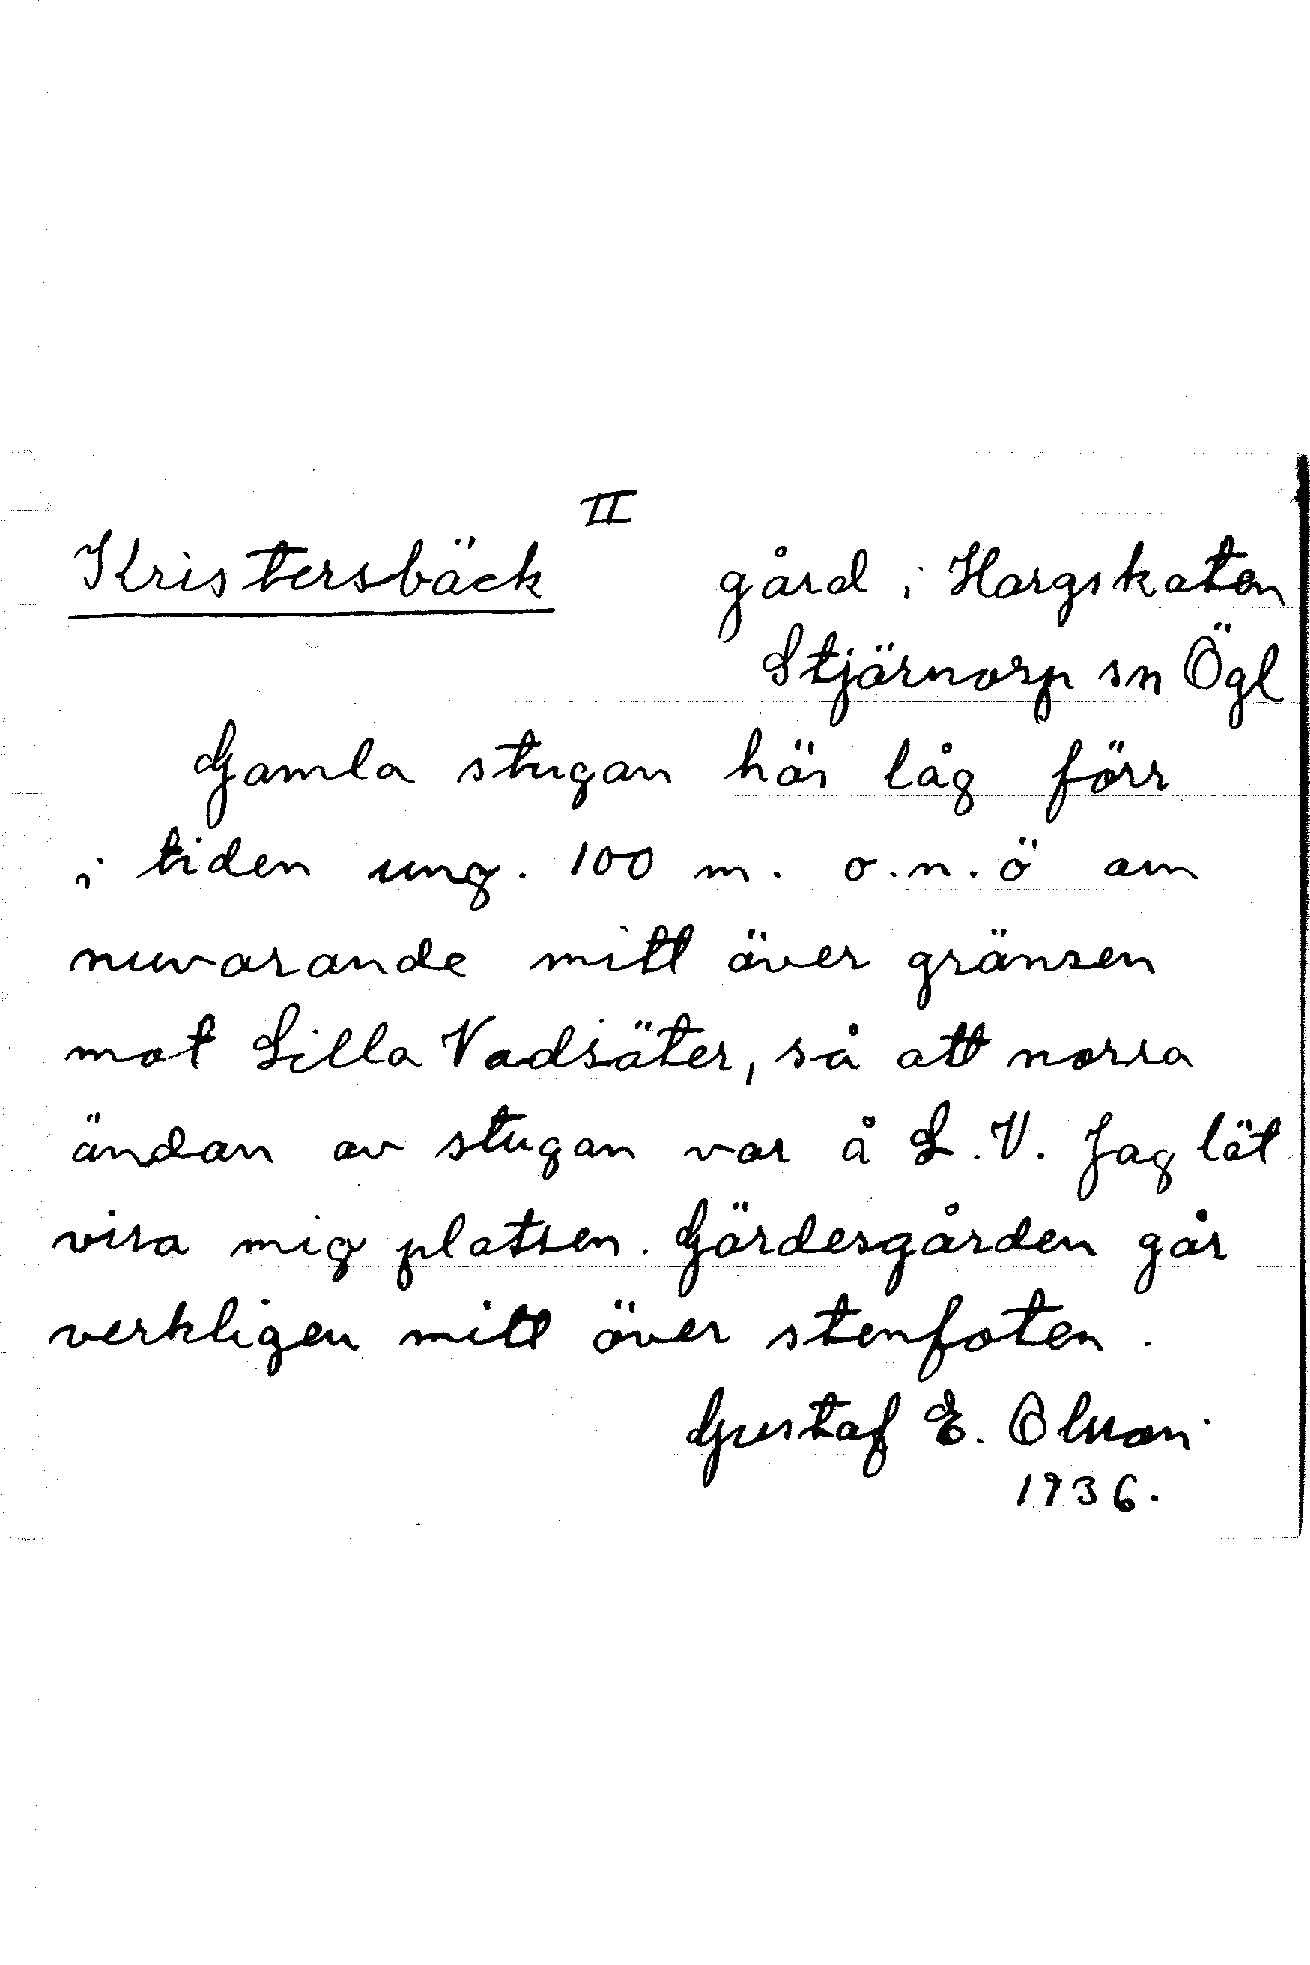 II
Kristersbäck gård i Hargskaten
Stjärnorp sn Ögl
Gamla stugan här låg förr
i tiden ung. 100 m. o.n.ö om
nuvarande mitt över gränsen
mot Lilla Vadsäter, så att norra
ändan av stugan var å L.V. Jag lät
visa mig platsen. Gärdesgården går
verkligen mitt över stenfoten.
Gustaf E. Olsson
1936.